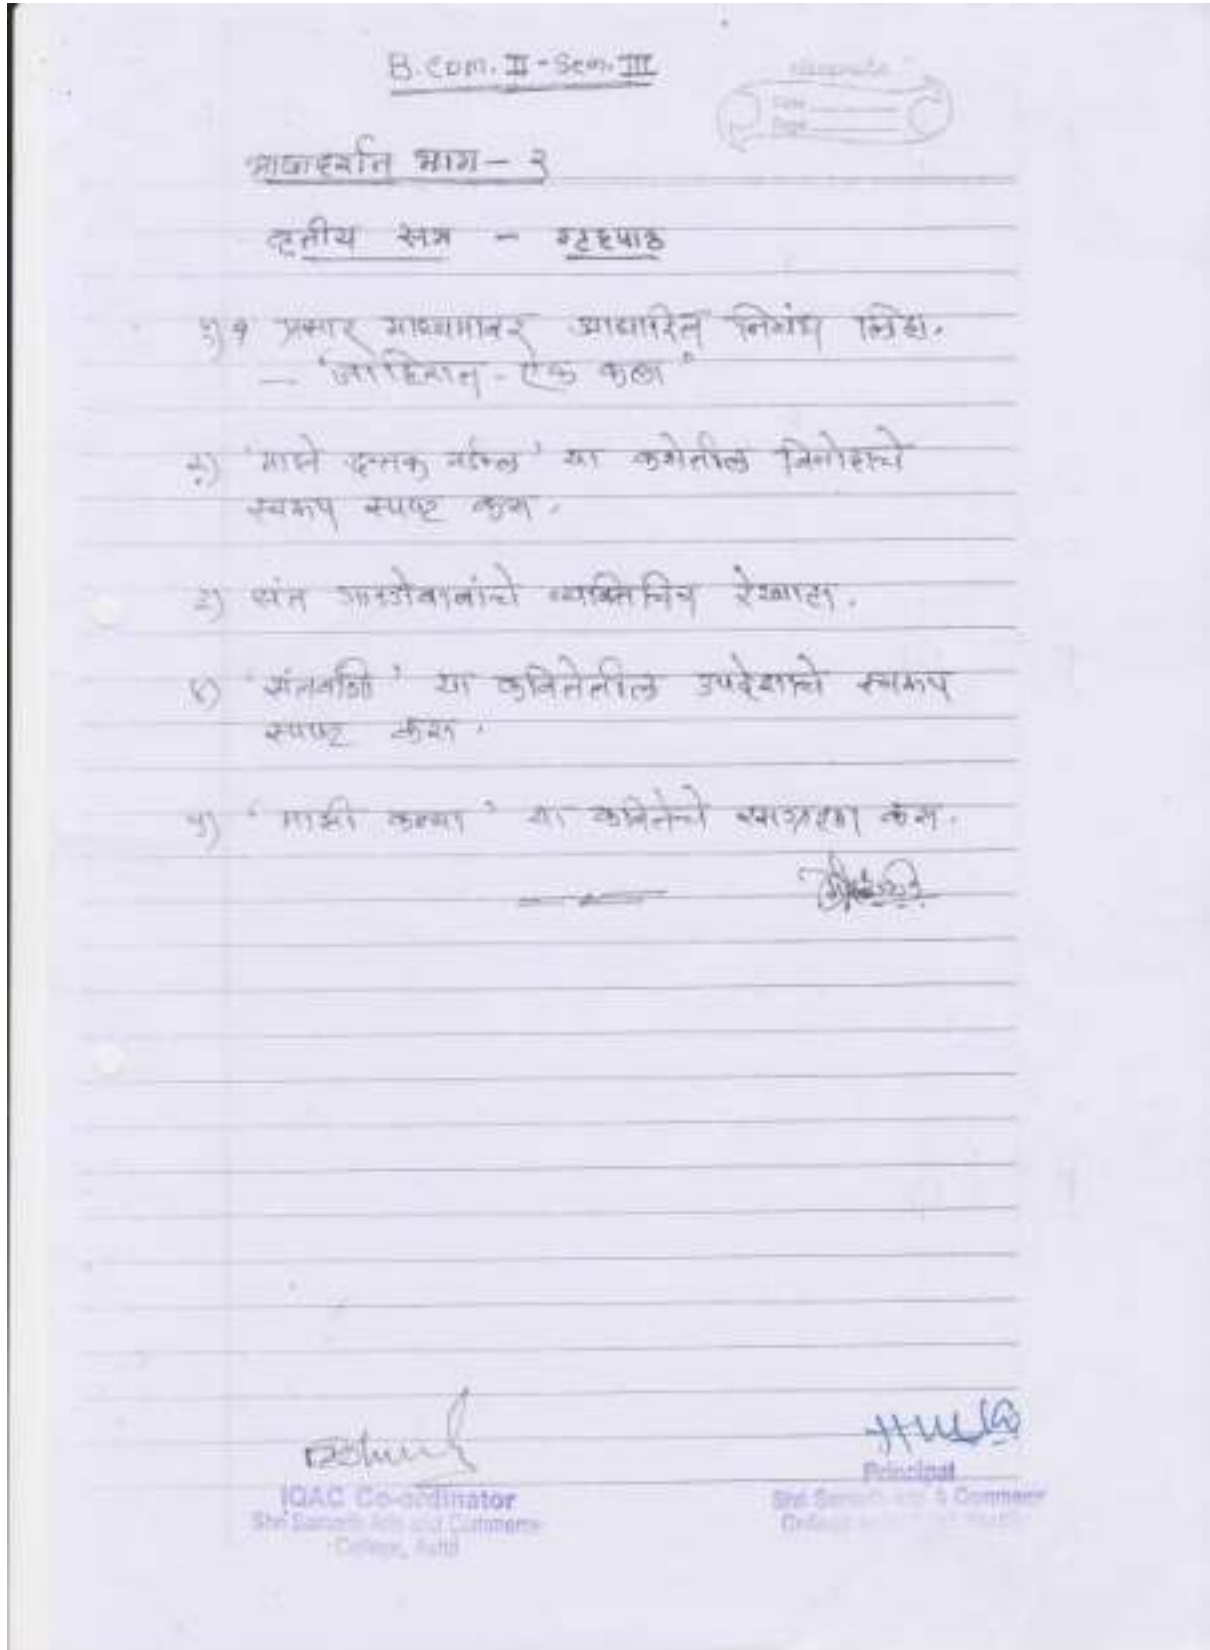 B.Com. II - Sem. III
classmate
Date
Page
भाषादर्शन भाग - २
तृतीय सत्र - गृहपाठ
१) प्रसार माध्यमावर आधारित निबंध लिहा.
— 'जाहिरात - एक कला'
२) 'माझे दत्तक वडील' या कथेतील विनोदाचे
स्वरूप स्पष्ट करा.
३) संत गाडगेबाबांचे व्यक्तिचित्र रेखाटा.
४) 'संतवाणी' या कवितेतील उपदेशाचे स्वरूप
स्पष्ट करा.
५) 'माझी कन्या' या कवितेचे रसग्रहण करा.
IQAC Co-ordinator
Shri Samarth Arts and Commerce
College, Ashti
Principal
Shri Samarth Arts & Commerce
College